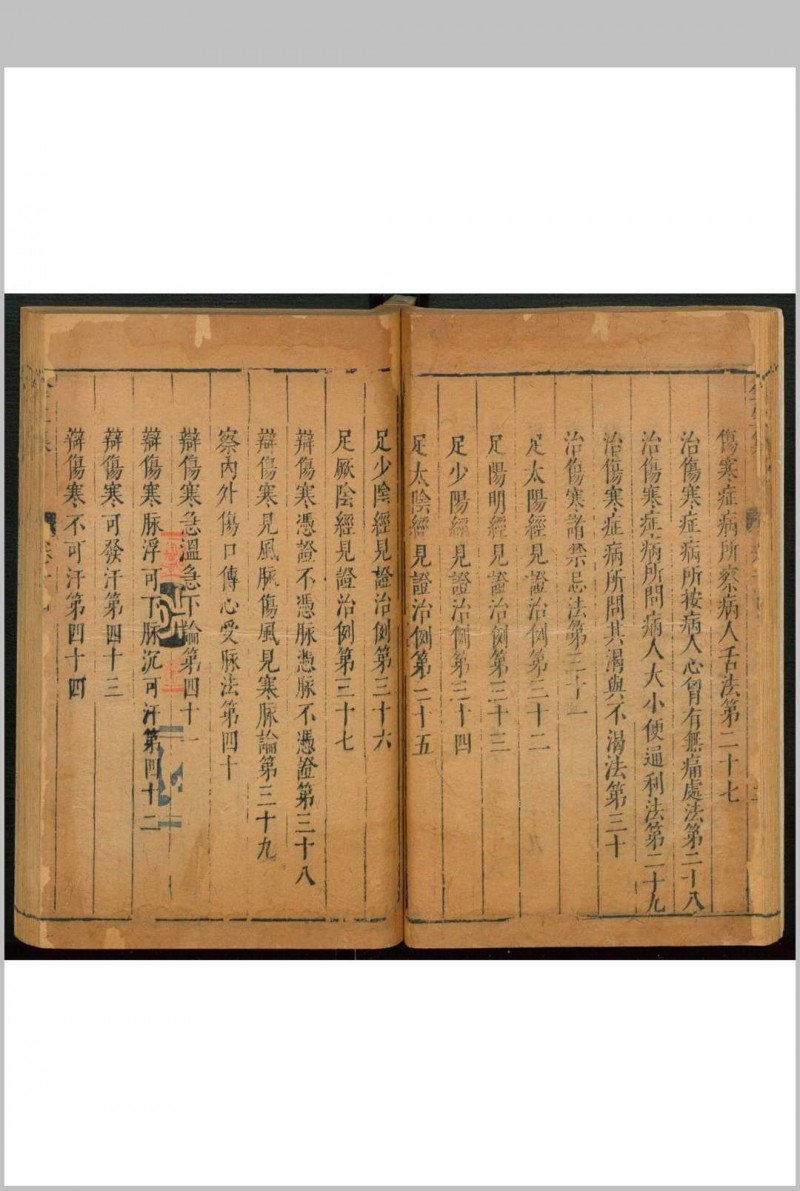 傷寒症病所察病人舌法第二十七
治傷寒症病所按病人心胷有無痛處法第二十八
治傷寒症病所問病人大小便通利法第二十九
治傷寒症病所問其渴與不渴法第三十
治傷寒諸禁忌法第三十一
足太陽經見證治例第三十二
足陽明經見證治例第三十三
足少陽經見證治例第三十四
足太陰經見證治例第三十五
足少陰經見證治例第三十六
足厥陰經見證治例第三十七
辯傷寒憑證不憑脉憑脉不憑證第三十八
辯傷寒見風脉傷風見寒脉論第三十九
察內外傷口傳心受脉法第四十
辯傷寒急溫急下論第四十一
辯傷寒脉浮可下脉沉可汗第四十二
辯傷寒可發汗第四十三
辯傷寒不可汗第四十四